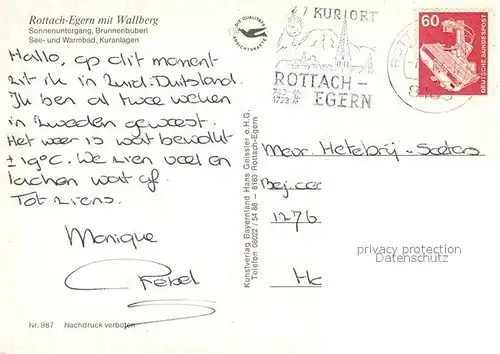 Rottach-Egern mit Wallberg
Sonnenuntergang, Brunnenbuberl
See- und Warmbad, Kuranlagen
DIE QUALITÄTS
ANSICHTSKARTE
KURORT
ROTTACH-
EGERN
60
DEUTSCHE BUNDESPOST
Hallo, op dit moment
zit ik in Zuid-Duitsland.
Ik ben al twee weken
in Zweden geweest.
Het weer is wat bewolkt
± 19°C. We zien veel en
lachen wat af.
Tot ziens.
Monique
Mevr.
1276
Kunstverlag Bayernland Hans Geissler o.H.G.
Telefon 08022 / 54 88 – 8183 Rottach-Egern
Nr. 987 Nachdruck verboten
popMatters.com